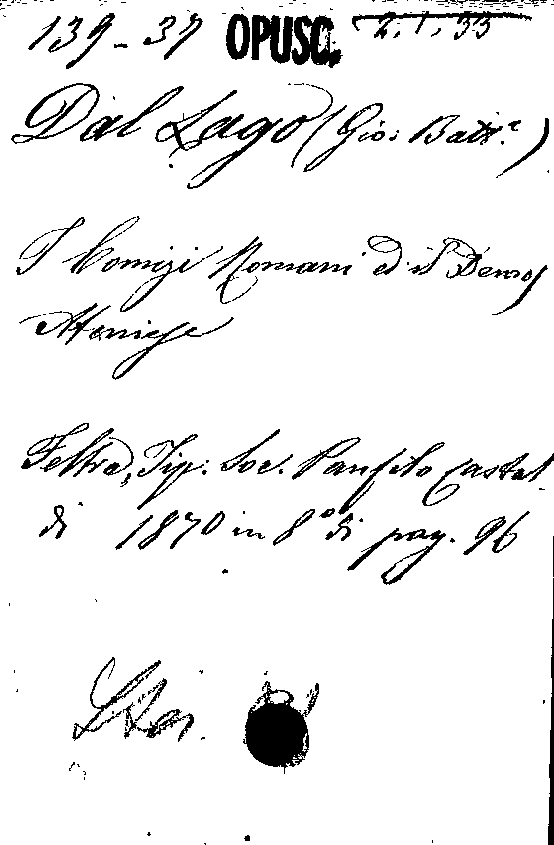 139-37 OPUSC. 2.1.33
Dal Lago (Gio: Batt.)
I Comizi Romani ed il Demos
Ateniese
Feltre, Tip. Soc. Panfilo Castal
di 1870 in 8° di pag. 96
Stor.